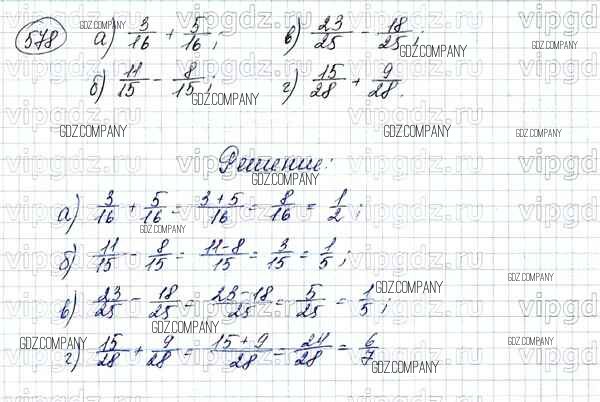 578 а) 3/16 + 5/16; в) 23/25 - 18/25;
б) 11/15 - 8/15; г) 15/28 + 9/28.
Решение:
а) 3/16 + 5/16 = 3+5/16 = 8/16 = 1/2;
б) 11/15 - 8/15 = 11-8/15 = 3/15 = 1/5;
в) 23/25 - 18/25 = 23-18/25 = 5/25 = 1/5;
г) 15/28 + 9/28 = 15+9/28 = 24/28 = 6/7
vipgdz.ru
GDZ.COMPANY